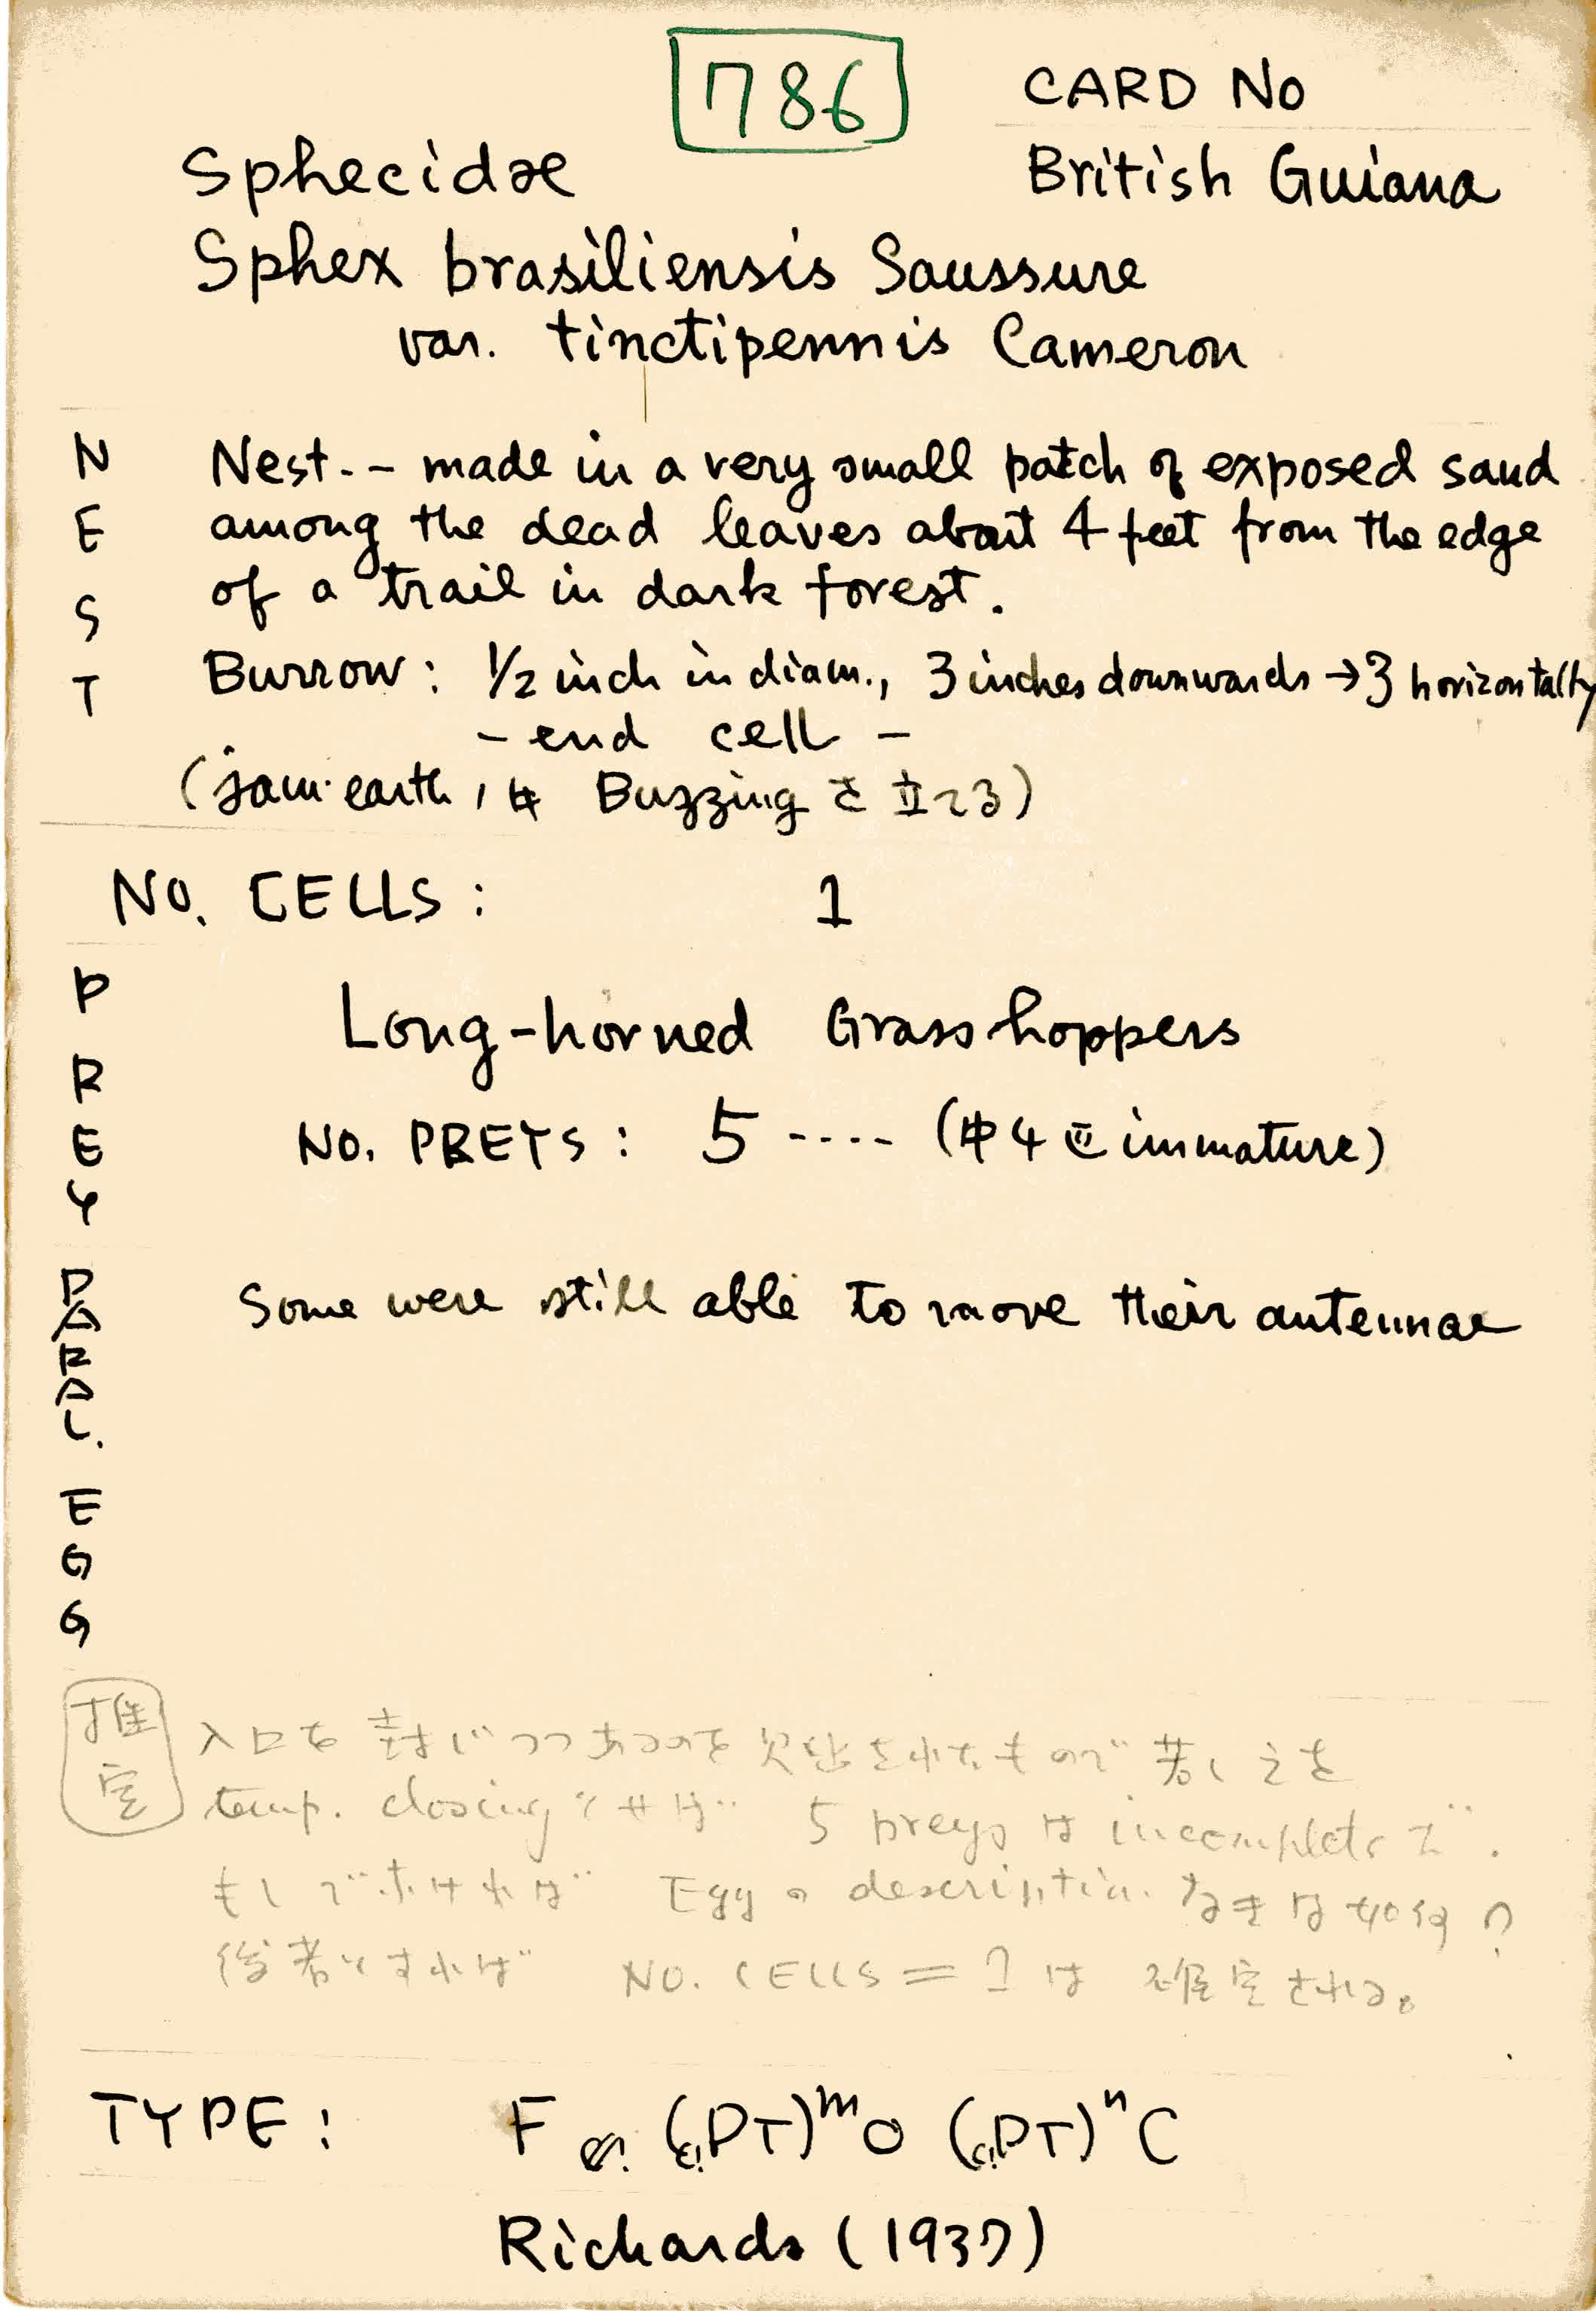 786
CARD No
Sphecidæ
British Guiana
Sphex brasiliensis Saussure
var. tinctipennis Cameron
NEST
Nest-- made in a very small patch of exposed sand
among the dead leaves about 4 feet from the edge
of a trail in dark forest.
Burrow: 1/2 inch in diam., 3 inches downwards → 3 horizontally
- end cell -
(jam earth, Buzzing を立てる)
NO. CELLS: 1
PREY
Long-horned Grasshoppers
NO. PREYS: 5 ---- (中4 immature)
PARAL.
Some were still able to move their antennae
EGG
推定
入口を封じつつあるのを されたもので 若し之を
temp. closing とせば 5 preys は incomplete で.
もしでなければ Egg の description なきは如何?
後者とすれば NO. CELLS = 1 は 確定される。
TYPE: F (c!PT)ᵐO (c!PT)ⁿC
Richards (1937)